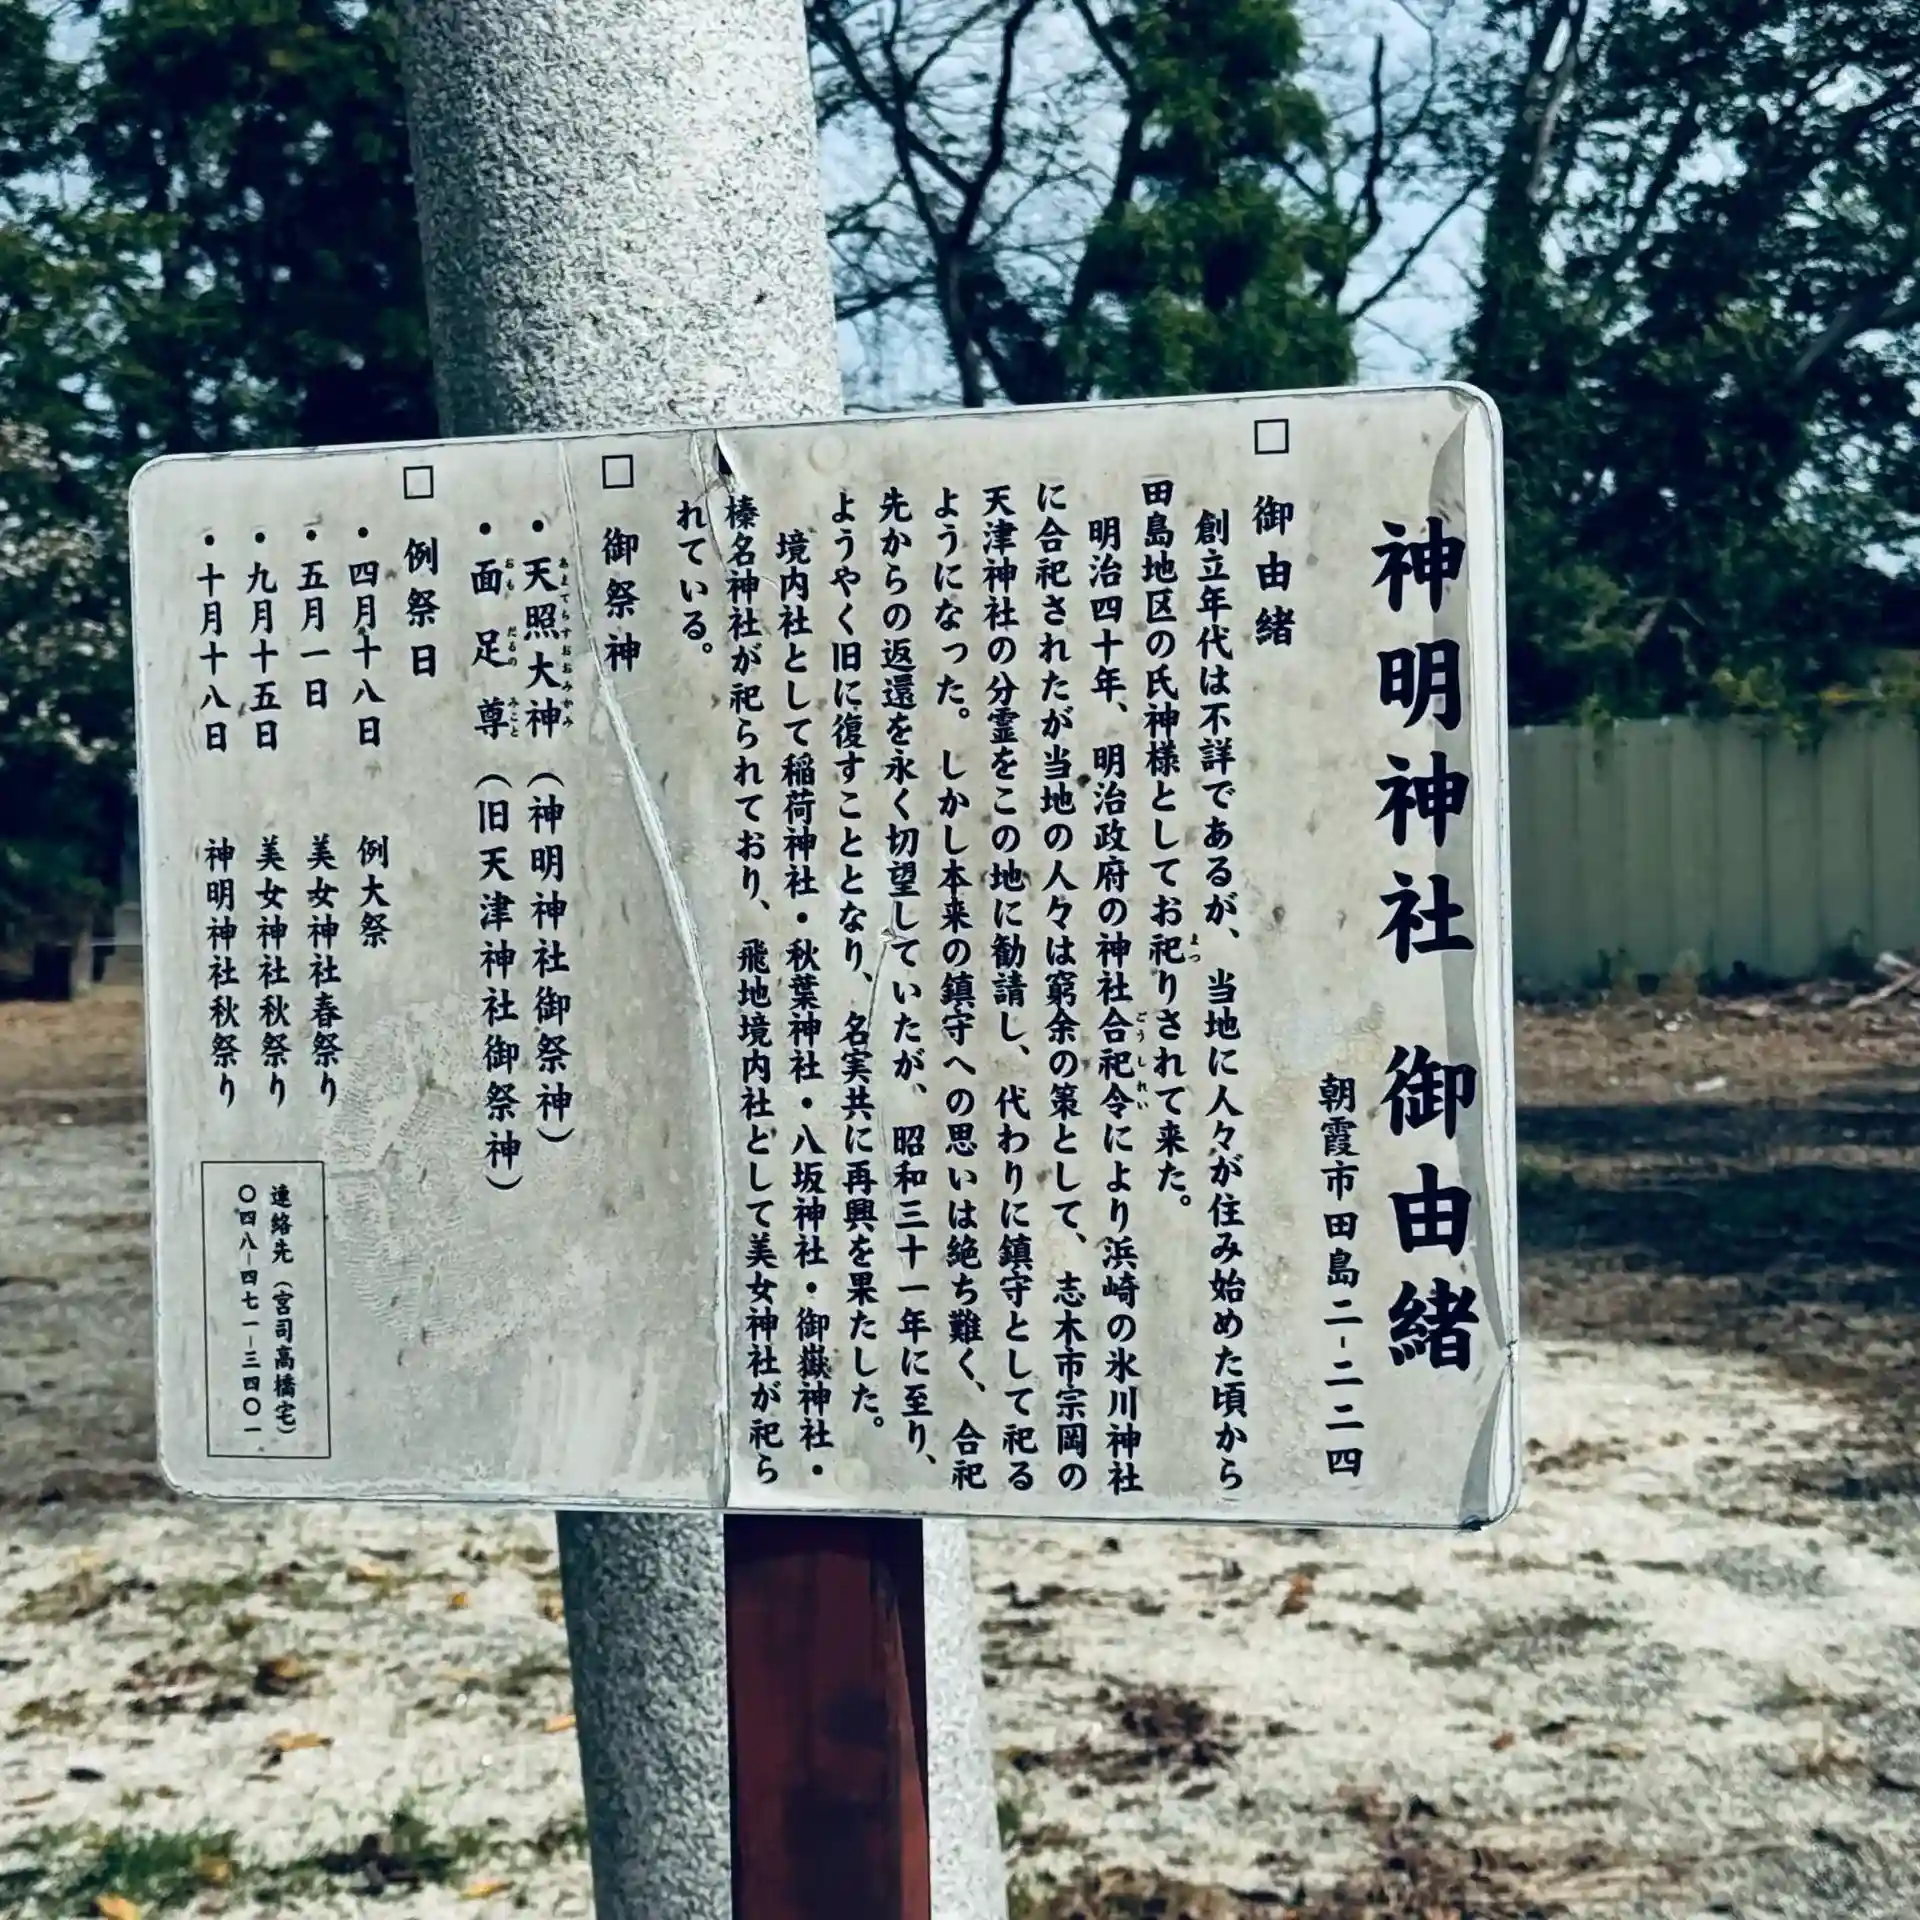 神明神社 御由緒
朝霞市田島二-二-二四
□ 御由緒
創立年代は不詳であるが、当地に人々が住み始めた頃から
田島地区の氏神様としてお祀りされて来た。
明治四十年、明治政府の神社合祀令により浜崎の氷川神社
に合祀されたが当地の人々は窮余の策として、志木市宗岡の
天津神社の分霊をこの地に勧請し、代わりに鎮守として祀る
ようになった。しかし本来の鎮守への思いは絶ち難く、合祀
先からの返還を永く切望していたが、昭和三十一年に至り、
ようやく旧に復すこととなり、名実共に再興を果たした。
境内社として稲荷神社・秋葉神社・八坂神社・御嶽神社・
榛名神社が祀られており、飛地境内社として美女神社が祀ら
れている。
□ 御祭神
・天照大神（神明神社御祭神）
・面足尊（旧天津神社御祭神）
□ 例祭日
・四月十八日 例大祭
・五月一日 美女神社春祭り
・九月十五日 美女神社秋祭り
・十月十八日 神明神社秋祭り
連絡先（宮司高橋宅）
〇四八-四七一-三四〇一